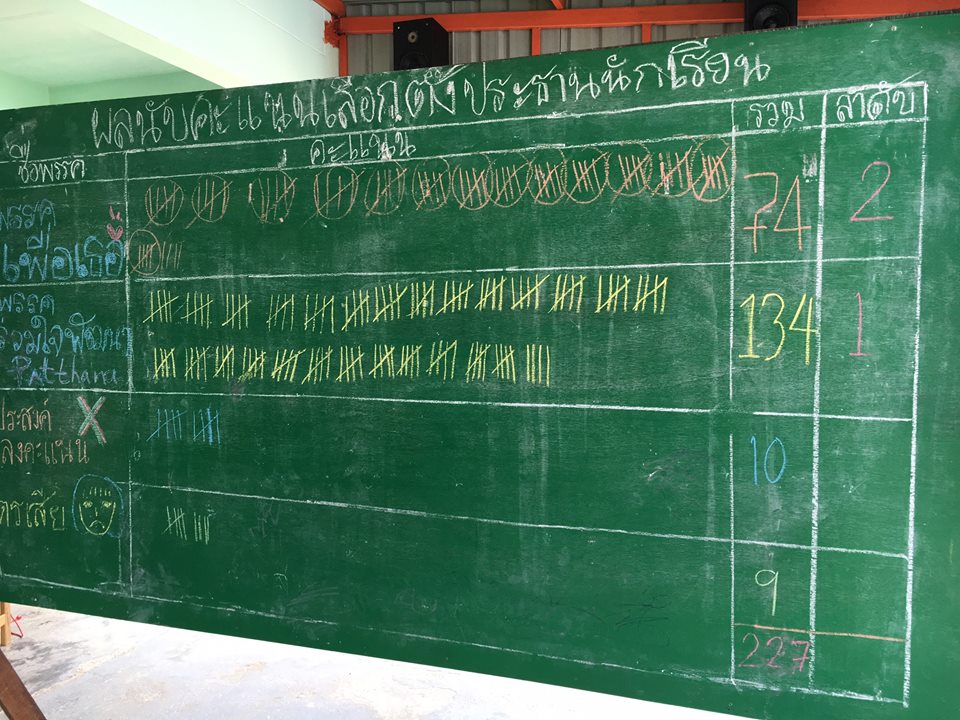 ผลนับคะแนนเลือกตั้งประธานนักเรียน
ชื่อพรรค คะแนน รวม ลำดับ
พรรค
เพื่อเธอ 74 2
พรรค
รวมใจพัฒนา 134 1
Patthana
ประสงค์ X
ลงคะแนน 10
ตรเสีย 9
227